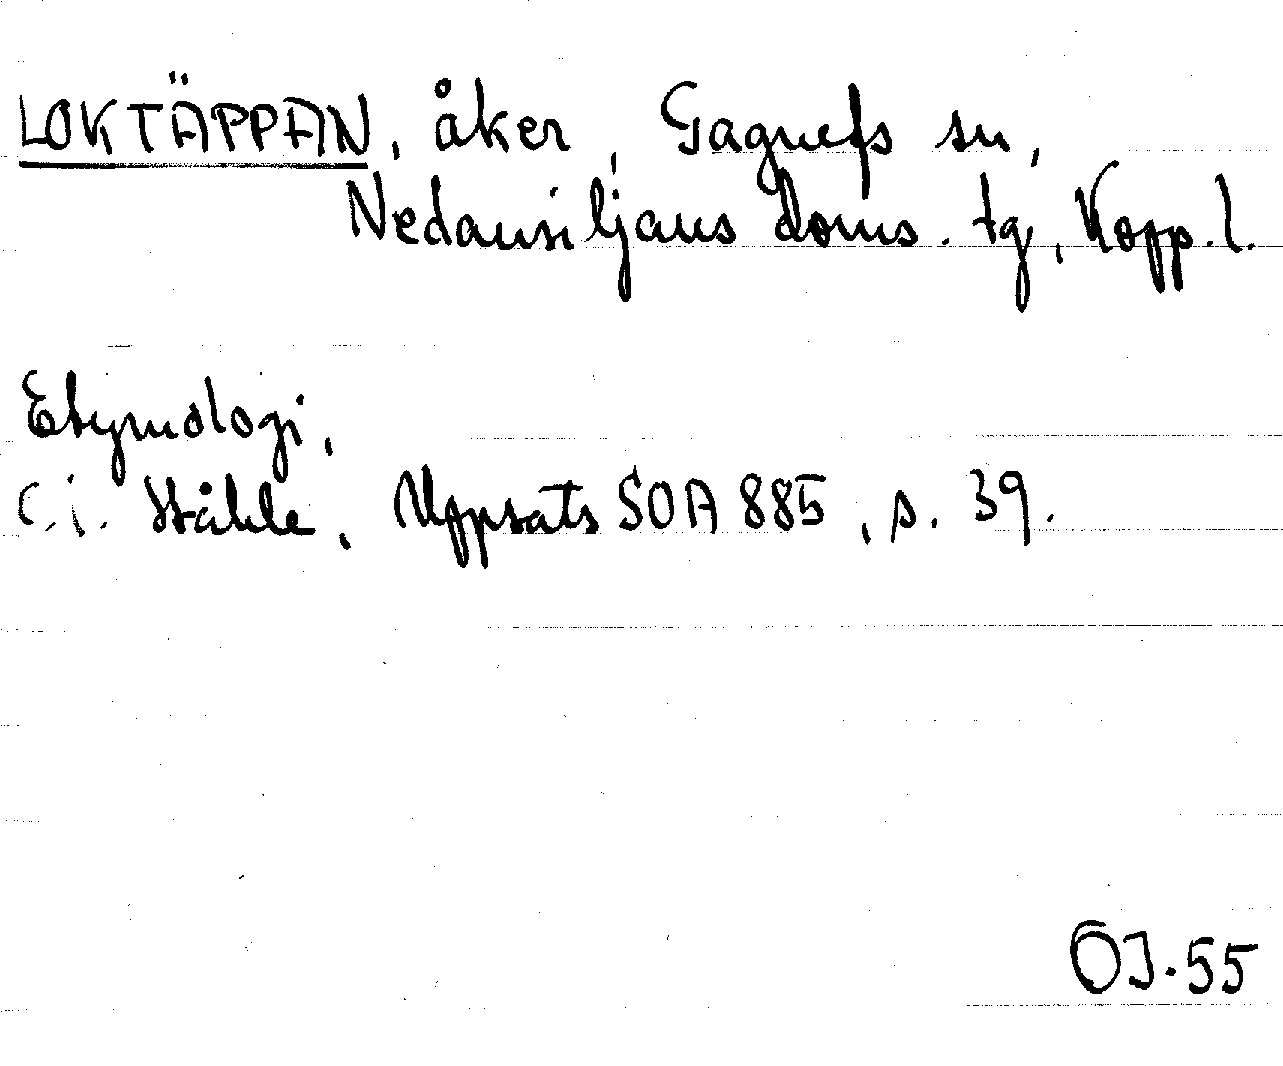 LOKTÄPPAN, åker, Gagnefs sn,
Nedansiljans doms. tg, Kopp. l.
Etymologi,
C. i. Ståhle, Uppsats SOA 885, s. 39.
ÖJ.55